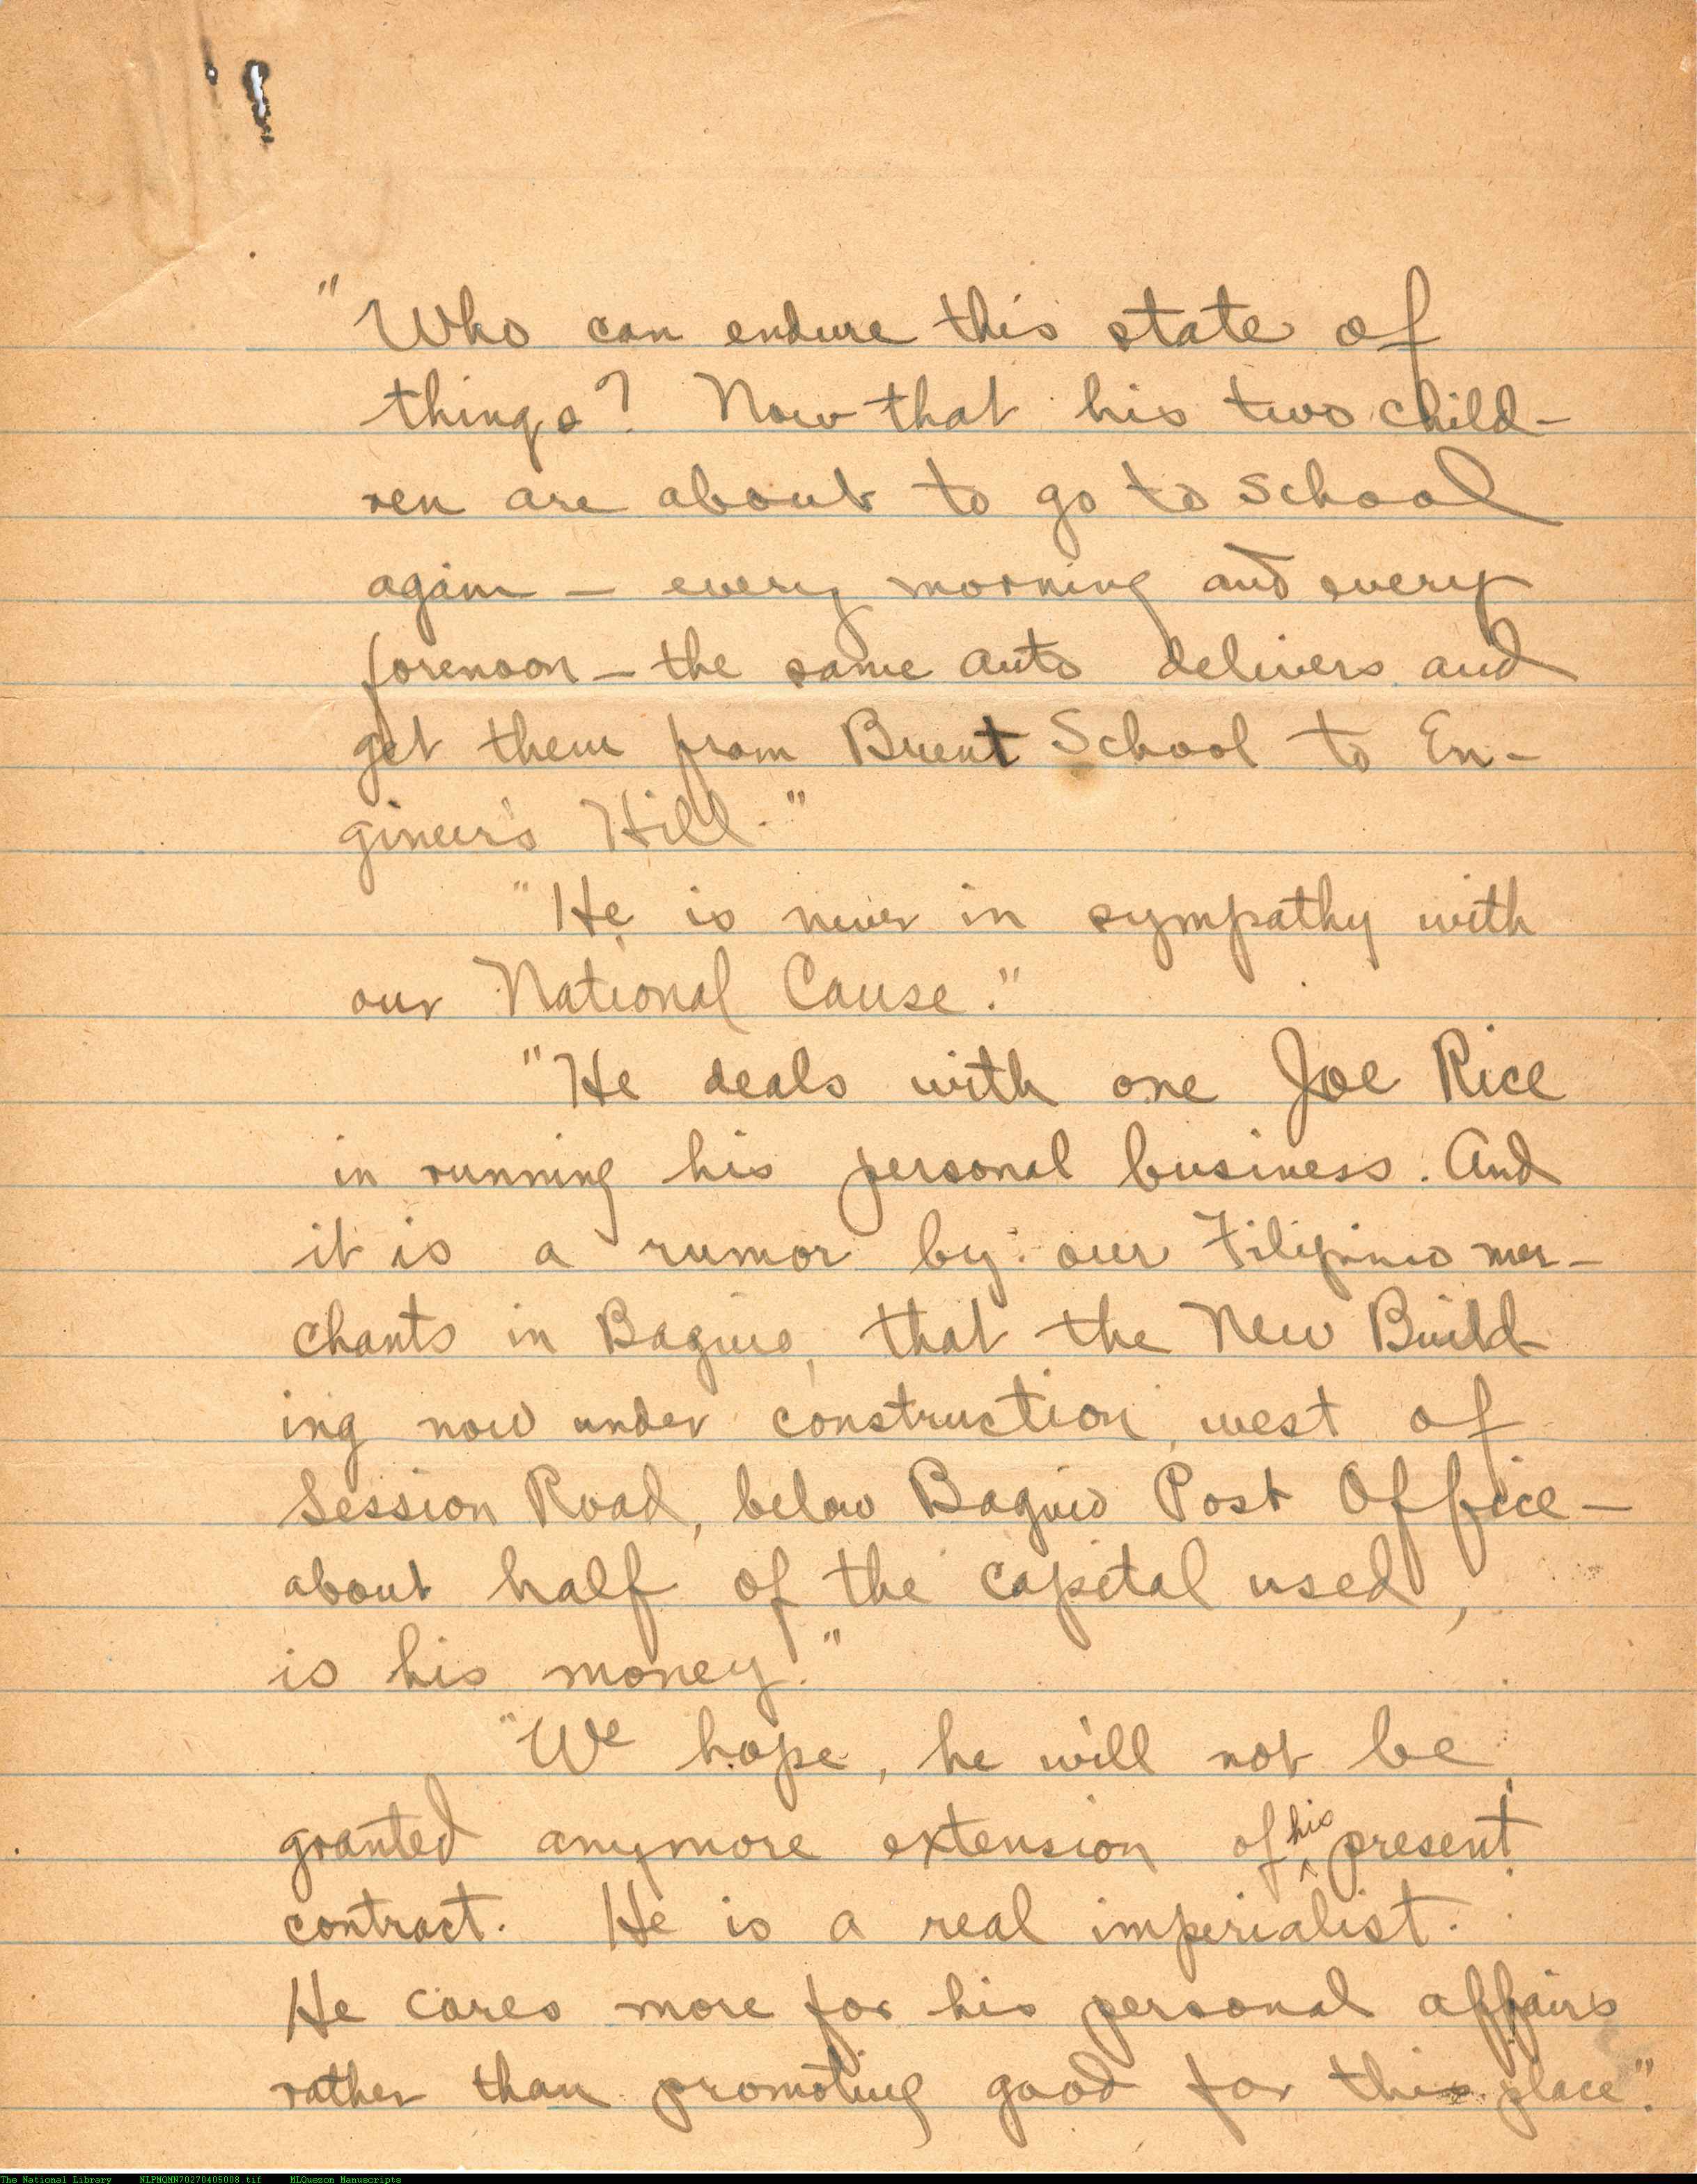 "Who can endure this state of
things? Now that his two child-
ren are about to go to school
again – every morning and every
forenoon – the same auto delivers and
get them from Brent School to En-
gineer's Hill."
"He is never in sympathy with
our National Cause."
"He deals with one Joe Rice
in running his personal business. And
it is a rumor by our Filipino mer-
chants in Baguio, that the New Build-
ing now under construction, west of
Session Road, below Baguio Post Office –
about half of the capital used,
is his money."
"We hope, he will not be
granted anymore extension of his present
contract. He is a real imperialist.
He cares more for his personal affairs
rather than promoting good for this place".
The National Library NLPMQMN70270405008.tif MLQuezon Manuscripts